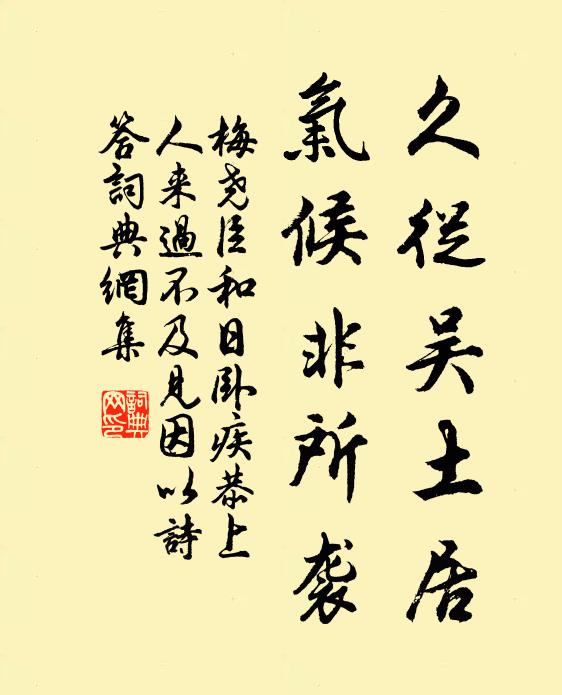 久從吴土居
氣候非所袭
梅尧臣和日卧疾恭上
人来過不及見因以詩
答詞典網集
詞典
网印